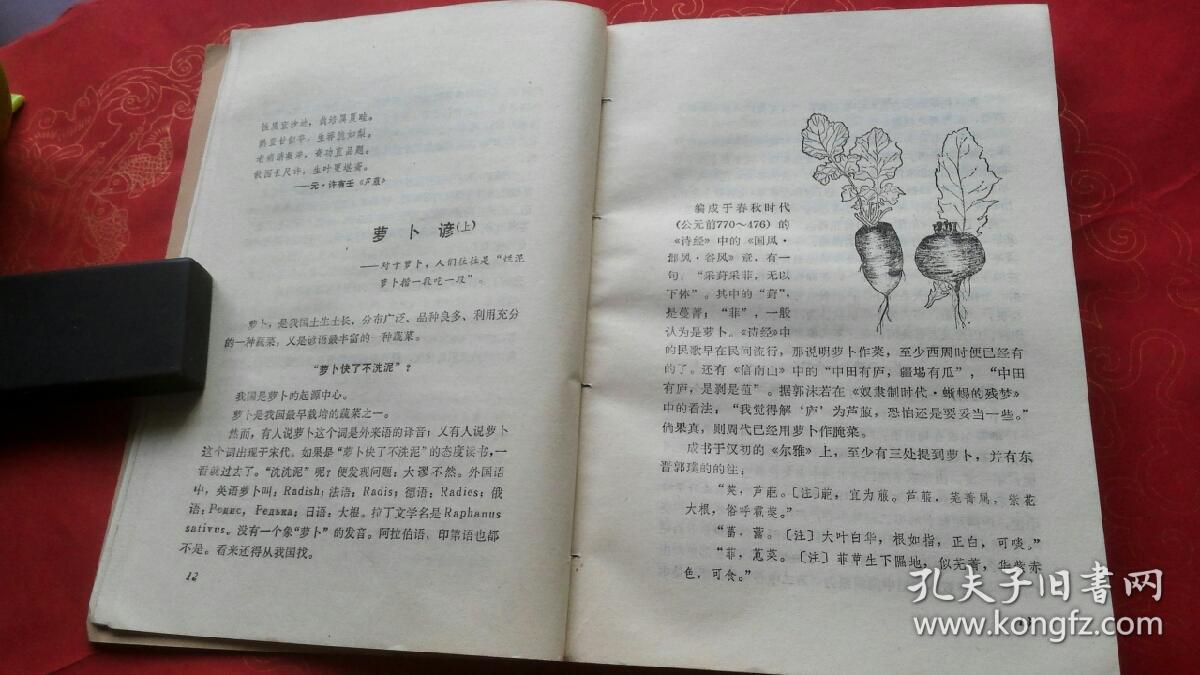 性质宜沙地，栽培属夏畦。
熟登甘似芋，生荐脆如梨。
老病消凝滞，奇功直品题。
故园长尺许，生叶更堪齑。
——元·许有壬《芦菔》
萝卜谚(上)
——对于萝卜，人们往往是“烘泥
萝卜揩一段吃一段”。
萝卜，是我国土生土长，分布广泛、品种良多、利用充分
的一种蔬菜，又是谚语最丰富的一种蔬菜。
“萝卜快了不洗泥”？
我国是萝卜的起源中心。
萝卜是我国最早栽培的蔬菜之一。
然而，有人说萝卜这个词是外来语的译音；又有人说萝卜
这个词出现于宋代。如果是“萝卜快了不洗泥”的态度读书，一
看就过去了。“洗洗泥”呢？便发现问题：大谬不然。外国语
中，英语萝卜叫：Radish；法语：Radis；德语：Radies；俄
语：Редис，Редька；日语：大根。拉丁文学名是Raphanus
sativus。没有一个象“萝卜”的发音。阿拉伯语、印第语也都
不是。看来还得从我国找。
12
编成于春秋时代
(公元前770～476)的
《诗经》中的《国风·
邶风·谷风》章，有一
句：“采葑采菲，无以
下体”。其中的“葑”，
是蔓菁；“菲”，一般
认为是萝卜。《诗经》中
的民歌早在民间流行，那说明萝卜作菜，至少西周时便已经有
的了。还有《信南山》中的“中田有庐，疆埸有瓜”，“中田
有庐，是剥是菹”。据郭沫若在《奴隶制时代·蜥蜴的残梦》
中的看法，“我觉得解‘庐’为芦菔，恐怕还是要妥当一些。”
倘果真，则周代已经用萝卜作腌菜。
成书于汉初的《尔雅》上，至少有三处提到萝卜，并有东
晋郭璞的的注：
“葖，芦萉。〔注〕萉，宜为菔。芦菔，芜菁属，紫花
大根，俗呼雹葖。”
“葍，䔰。〔注〕大叶白华，根如指，正白，可啖。”
“菲，蒠菜。〔注〕菲草生下隰地，似芜菁，华紫赤
色，可食。”
孔夫子旧书网
www.kongfz.com